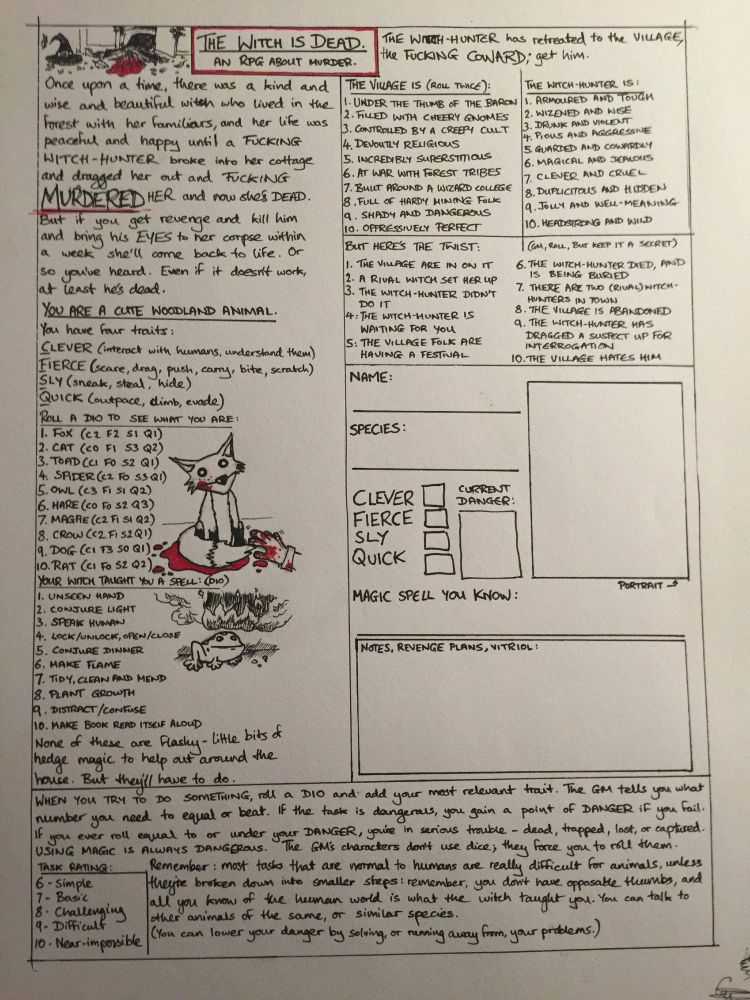 THE WITCH IS DEAD.
AN RPG ABOUT MURDER.
Once upon a time, there was a kind and
wise and beautiful witch who lived in the
forest with her familiars, and her life was
peaceful and happy until a FUCKING
WITCH-HUNTER broke into her cottage
and dragged her out and FUCKING
MURDERED HER and now she's DEAD.
But if you get revenge and kill him
and bring his EYES to her corpse within
a week she'll come back to life. Or
so you've heard. Even if it doesn't work,
at least he's dead.
YOU ARE A CUTE WOODLAND ANIMAL.
You have four traits:
CLEVER (interact with humans, understand them)
FIERCE (scare, drag, push, carry, bite, scratch)
SLY (sneak, steal, hide)
QUICK (outpace, climb, evade)
ROLL A D10 TO SEE WHAT YOU ARE:
1. FOX (C2 F2 S1 Q1)
2. CAT (C0 F1 S3 Q2)
3. TOAD (C1 F0 S2 Q1)
4. SPIDER (C2 F0 S3 Q1)
5. OWL (C3 F1 S1 Q2)
6. HARE (C0 F0 S2 Q3)
7. MAGPIE (C2 F1 S1 Q2)
8. CROW (C2 F1 S2 Q1)
9. DOG (C1 F3 S0 Q1)
10. RAT (C1 F0 S2 Q2)
YOUR WITCH TAUGHT YOU A SPELL: (D10)
1. UNSEEN HAND
2. CONJURE LIGHT
3. SPEAK HUMAN
4. LOCK/UNLOCK, OPEN/CLOSE
5. CONJURE DINNER
6. MAKE FLAME
7. TIDY, CLEAN AND MEND
8. PLANT GROWTH
9. DISTRACT/CONFUSE
10. MAKE BOOK READ ITSELF ALOUD
None of these are flashy - little bits of
hedge magic to help out around the
house. But they'll have to do.
THE WITCH-HUNTER has retreated to the VILLAGE,
the FUCKING COWARD; get him.
THE VILLAGE IS (ROLL TWICE):
1. UNDER THE THUMB OF THE BARON
2. FILLED WITH CHEERY GNOMES
3. CONTROLLED BY A CREEPY CULT
4. DEVOUTLY RELIGIOUS
5. INCREDIBLY SUPERSTITIOUS
6. AT WAR WITH FOREST TRIBES
7. BUILT AROUND A WIZARD COLLEGE
8. FULL OF HARDY MINING FOLK
9. SHADY AND DANGEROUS
10. OPPRESSIVELY PERFECT
THE WITCH-HUNTER IS:
1. ARMOURED AND TOUGH
2. WIZENED AND WISE
3. DRUNK AND VIOLENT
4. PIOUS AND AGGRESSIVE
5. GUARDED AND COWARDLY
6. MAGICAL AND JEALOUS
7. CLEVER AND CRUEL
8. DUPLICITOUS AND HIDDEN
9. JOLLY AND WELL-MEANING
10. HEADSTRONG AND WILD
BUT HERE'S THE TWIST:
(GM, ROLL, BUT KEEP IT A SECRET)
1. THE VILLAGE ARE IN ON IT
2. A RIVAL WITCH SET HER UP
3. THE WITCH-HUNTER DIDN'T
DO IT
4: THE WITCH-HUNTER IS
WAITING FOR YOU
5: THE VILLAGE FOLK ARE
HAVING A FESTIVAL
6. THE WITCH-HUNTER DIED, AND
IS BEING BURIED
7. THERE ARE TWO (RIVAL) WITCH-
HUNTERS IN TOWN
8. THE VILLAGE IS ABANDONED
9. THE WITCH-HUNTER HAS
DRAGGED A SUSPECT UP FOR
INTERROGATION
10. THE VILLAGE HATES HIM
NAME:
SPECIES:
CLEVER
FIERCE
SLY
QUICK
CURRENT
DANGER:
PORTRAIT
MAGIC SPELL YOU KNOW:
NOTES, REVENGE PLANS, VITRIOL:
WHEN YOU TRY TO DO SOMETHING, roll a D10 and add your most relevant trait. The GM tells you what
number you need to equal or beat. If the task is dangerous, you gain a point of DANGER if you fail.
If you ever roll equal to or under your DANGER, you're in serious trouble - dead, trapped, lost, or captured.
USING MAGIC IS ALWAYS DANGEROUS. The GM's characters don't use dice; they force you to roll them.
TASK RATING:
6 - Simple
7 - Basic
8 - Challenging
9 - Difficult
10 - Near-impossible
Remember: most tasks that are normal to humans are really difficult for animals, unless
they're broken down into smaller steps: remember, you don't have opposable thumbs, and
all you know of the human world is what the witch taught you. You can talk to
other animals of the same, or similar species.
(You can lower your danger by solving, or running away from, your problems.)